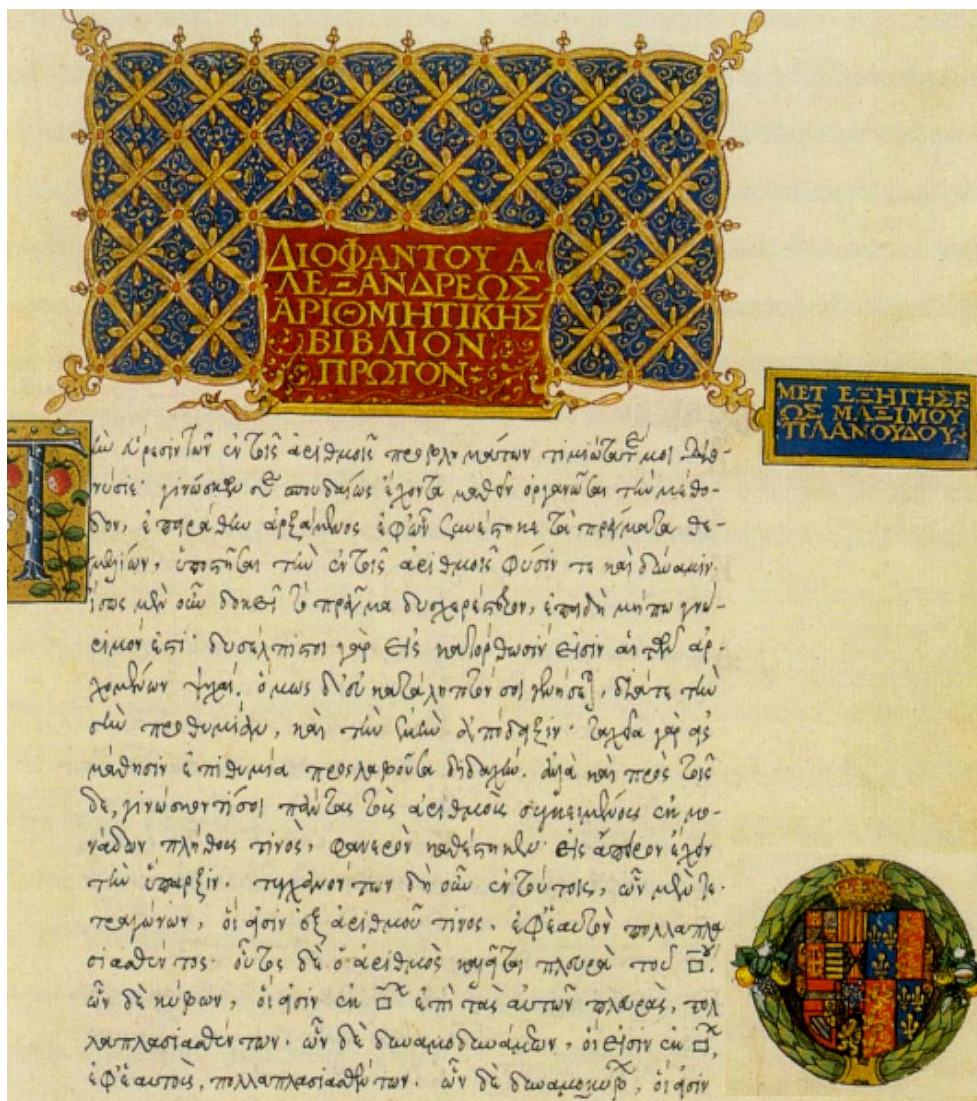 ΔΙΟΦΑΝΤΟΥ Α
ΛΕΞΑΝΔΡΕΩΣ
ΑΡΙΘΜΗΤΙΚΗΣ
ΒΙΒΛΙΟΝ
ΠΡΩΤΟΝ
ΜΕΤ ΕΞΗΓΗΣΕ
ΩΣ ΜΑΞΙΜΟΥ
ΠΛΑΝΟΥΔΟΥ
Τὴν εὕρεσιν τῶν ἐν τοῖς ἀριθμοῖς προβλημάτων τιμιώτατέ μοι Διο-
νύσιε· γινώσκων σε σπουδαίως ἔχοντα μαθεῖν ὀργανῶσαι τὴν μέθο-
δον, ἐπειράθην ἀρξάμενος ἀφ' ὧν συνέστηκε τὰ πράγματα θε-
μελίων, ὑποστῆσαι τὴν ἐν τοῖς ἀριθμοῖς φύσιν τε καὶ δύναμιν.
ἴσως μὲν οὖν δοκεῖ τὸ πρᾶγμα δυσχερέστερον, ἐπειδὴ μήπω γνώ-
ριμόν ἐστι· δυσέλπιστοι γὰρ εἰς κατόρθωσίν εἰσιν αἱ τῶν ἀρ-
χομένων ψυχαί. ὅμως δ' εὐκατάληπτόν σοι γενήσεται, διά τε τὴν
σὴν προθυμίαν, καὶ τὴν ἐμὴν ἀπόδειξιν· ταχεῖα γὰρ εἰς
μάθησιν ἐπιθυμία προσλαβοῦσα διδαχήν. ἀλλὰ καὶ πρὸς τοῖσ
δε, γινώσκοντί σοι πάντας τοὺς ἀριθμοὺς συγκειμένους ἐκ μο-
νάδων πλήθους τινός, φανερὸν καθέστηκεν εἰς ἄπειρον ἔχειν
τὴν ὕπαρξιν. τυγχανόντων δὴ οὖν ἐν τούτοις, ὧν μὲν τε-
τραγώνων, οἵ εἰσιν ἐξ ἀριθμοῦ τινος, ἐφ' ἑαυτὸν πολλαπλα
σιασθέντος· οὗτος δὲ ὁ ἀριθμὸς καλεῖται πλευρὰ τοῦ □ου.
ὧν δὲ κύβων, οἵ εἰσιν ἐκ □ων ἐπὶ τὰς αὐτῶν πλευράς, πολ
λαπλασιασθέντων. ὧν δὲ δυναμοδυνάμεων, οἵ εἰσιν ἐκ □ων,
ἐφ' ἑαυτοὺς, πολλαπλασιασθέντων. ὧν δὲ δυναμοκύβων, οἵ εἰσιν